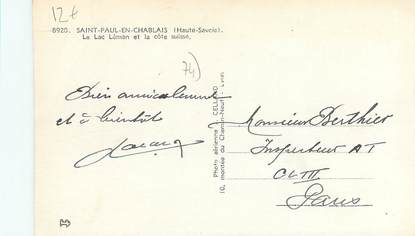 12€
8920. SAINT-PAUL-EN-CHABLAIS (Haute-Savoie).
Le Lac Léman et la côte suisse.
74)
Bien amicalement
et à bientôt
Photo aérienne J. CELLARD
10, montée du Chemin-Neuf - Lyon
Monsieur Berthier
Inspecteur AT
CLIII
Paris